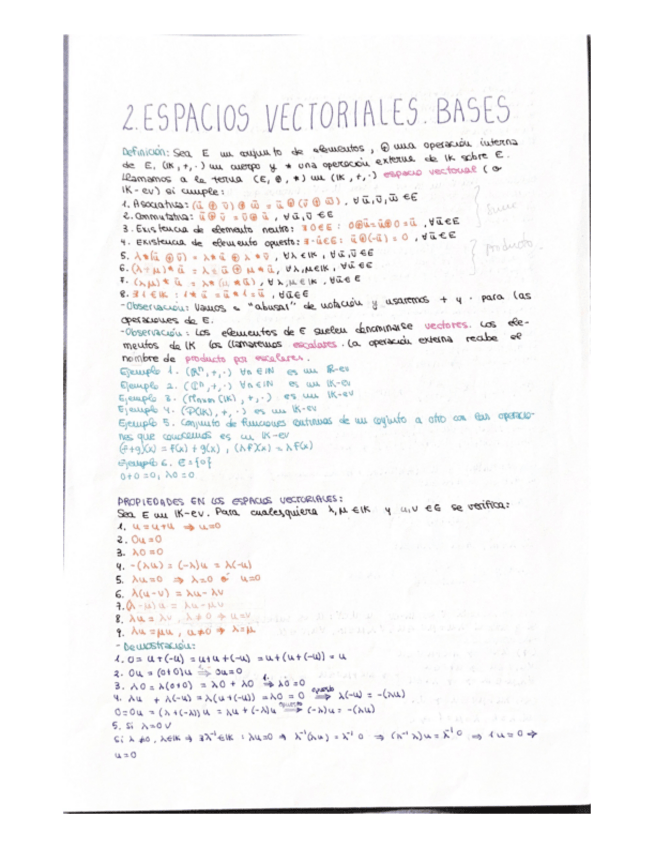 2. ESPACIOS VECTORIALES. BASES
Definición: Sea E un conjunto de elementos, ⊕ una operación interna
de E, (IK, +, ·) un cuerpo y * una operación externa de IK sobre E.
Llamamos a la terna (E, ⊕, *) un (IK, +, ·) espacio vectorial (o
IK-ev) si cumple:
1. Asociativa: (ū ⊕ v̄) ⊕ w̄ = ū ⊕ (v̄ ⊕ w̄), ∀ū, v̄, w̄ ∈ E
2. Conmutativa: ū ⊕ v̄ = v̄ ⊕ ū, ∀ū, v̄ ∈ E
3. Existencia de elemento neutro: ∃0 ∈ E: 0⊕ū = ū⊕0 = ū, ∀ū ∈ E
4. Existencia de elemento opuesto: ∃-ū ∈ E: ū⊕(-ū) = 0, ∀ū ∈ E
Suma
Producto
5. λ*(ū ⊕ v̄) = λ*ū ⊕ λ*v̄, ∀λ ∈ IK, ∀ū, v̄ ∈ E
6. (λ+μ)*ū = λ*ū ⊕ μ*ū, ∀λ, μ ∈ IK, ∀ū ∈ E
7. (λμ)*ū = λ*(μ*ū), ∀λ, μ ∈ IK, ∀ū ∈ E
8. ∃1 ∈ IK: 1*ū = ū*1 = ū, ∀ū ∈ E
-Observación: Vamos a "abusar" de notación y usaremos + y · para las
operaciones de E.
-Observación: Los elementos de E suelen denominarse vectores. Los ele-
mentos de IK los llamaremos escalares. La operación externa recibe el
nombre de producto por escalares.
Ejemplo 1. (ℝⁿ, +, ·) ∀n ∈ IN es un IR-ev
Ejemplo 2. (ℂⁿ, +, ·) ∀n ∈ IN es un IK-ev
Ejemplo 3. (Mnxm(IK), +, ·) es un IK-ev
Ejemplo 4. (P(IK), +, ·) es un IK-ev
Ejemplo 5. Conjunto de funciones de un conjunto a otro con las operacio-
nes que conocemos es un IK-ev
(f+g)(x) = f(x) + g(x), (λf)(x) = λf(x)
Ejemplo 6. E = {0}
0+0=0, λ0=0
PROPIEDADES EN LOS ESPACIOS VECTORIALES:
Sea E un IK-ev. Para cualesquiera λ, μ ∈ IK y u, v ∈ E se verifica:
1. u = u+u ⇒ u=0
2. 0u=0
3. λ0=0
4. -(λu) = (-λ)u = λ(-u)
5. λu=0 ⇒ λ=0 ó u=0
6. λ(u-v) = λu-λv
7. (λ-μ)u = λu-μu
8. λu = λv, λ≠0 ⇒ u=v
9. λu = μu, u≠0 ⇒ λ=μ
- Demostración:
1. 0 = u+(-u) = u+u+(-u) = u+(u+(-u)) = u
2. 0u = (0+0)u ⇒ 0u=0
3. λ0 = λ(0+0) = λ0 + λ0 ⇒ λ0=0
4. λu + λ(-u) = λ(u+(-u)) = λ0 = 0 ⇒ λ(-u) = -(λu)
0=0u = (λ+(-λ))u = λu + (-λ)u ⇒ (-λ)u = -(λu)
5. Si λ=0 ✓
Si λ≠0, λ∈IK ⇒ ∃λ⁻¹∈IK: λu=0 ⇒ λ⁻¹(λu) = λ⁻¹0 ⇒ (λ⁻¹λ)u = λ⁻¹0 ⇒ 1u=0 ⇒
u=0